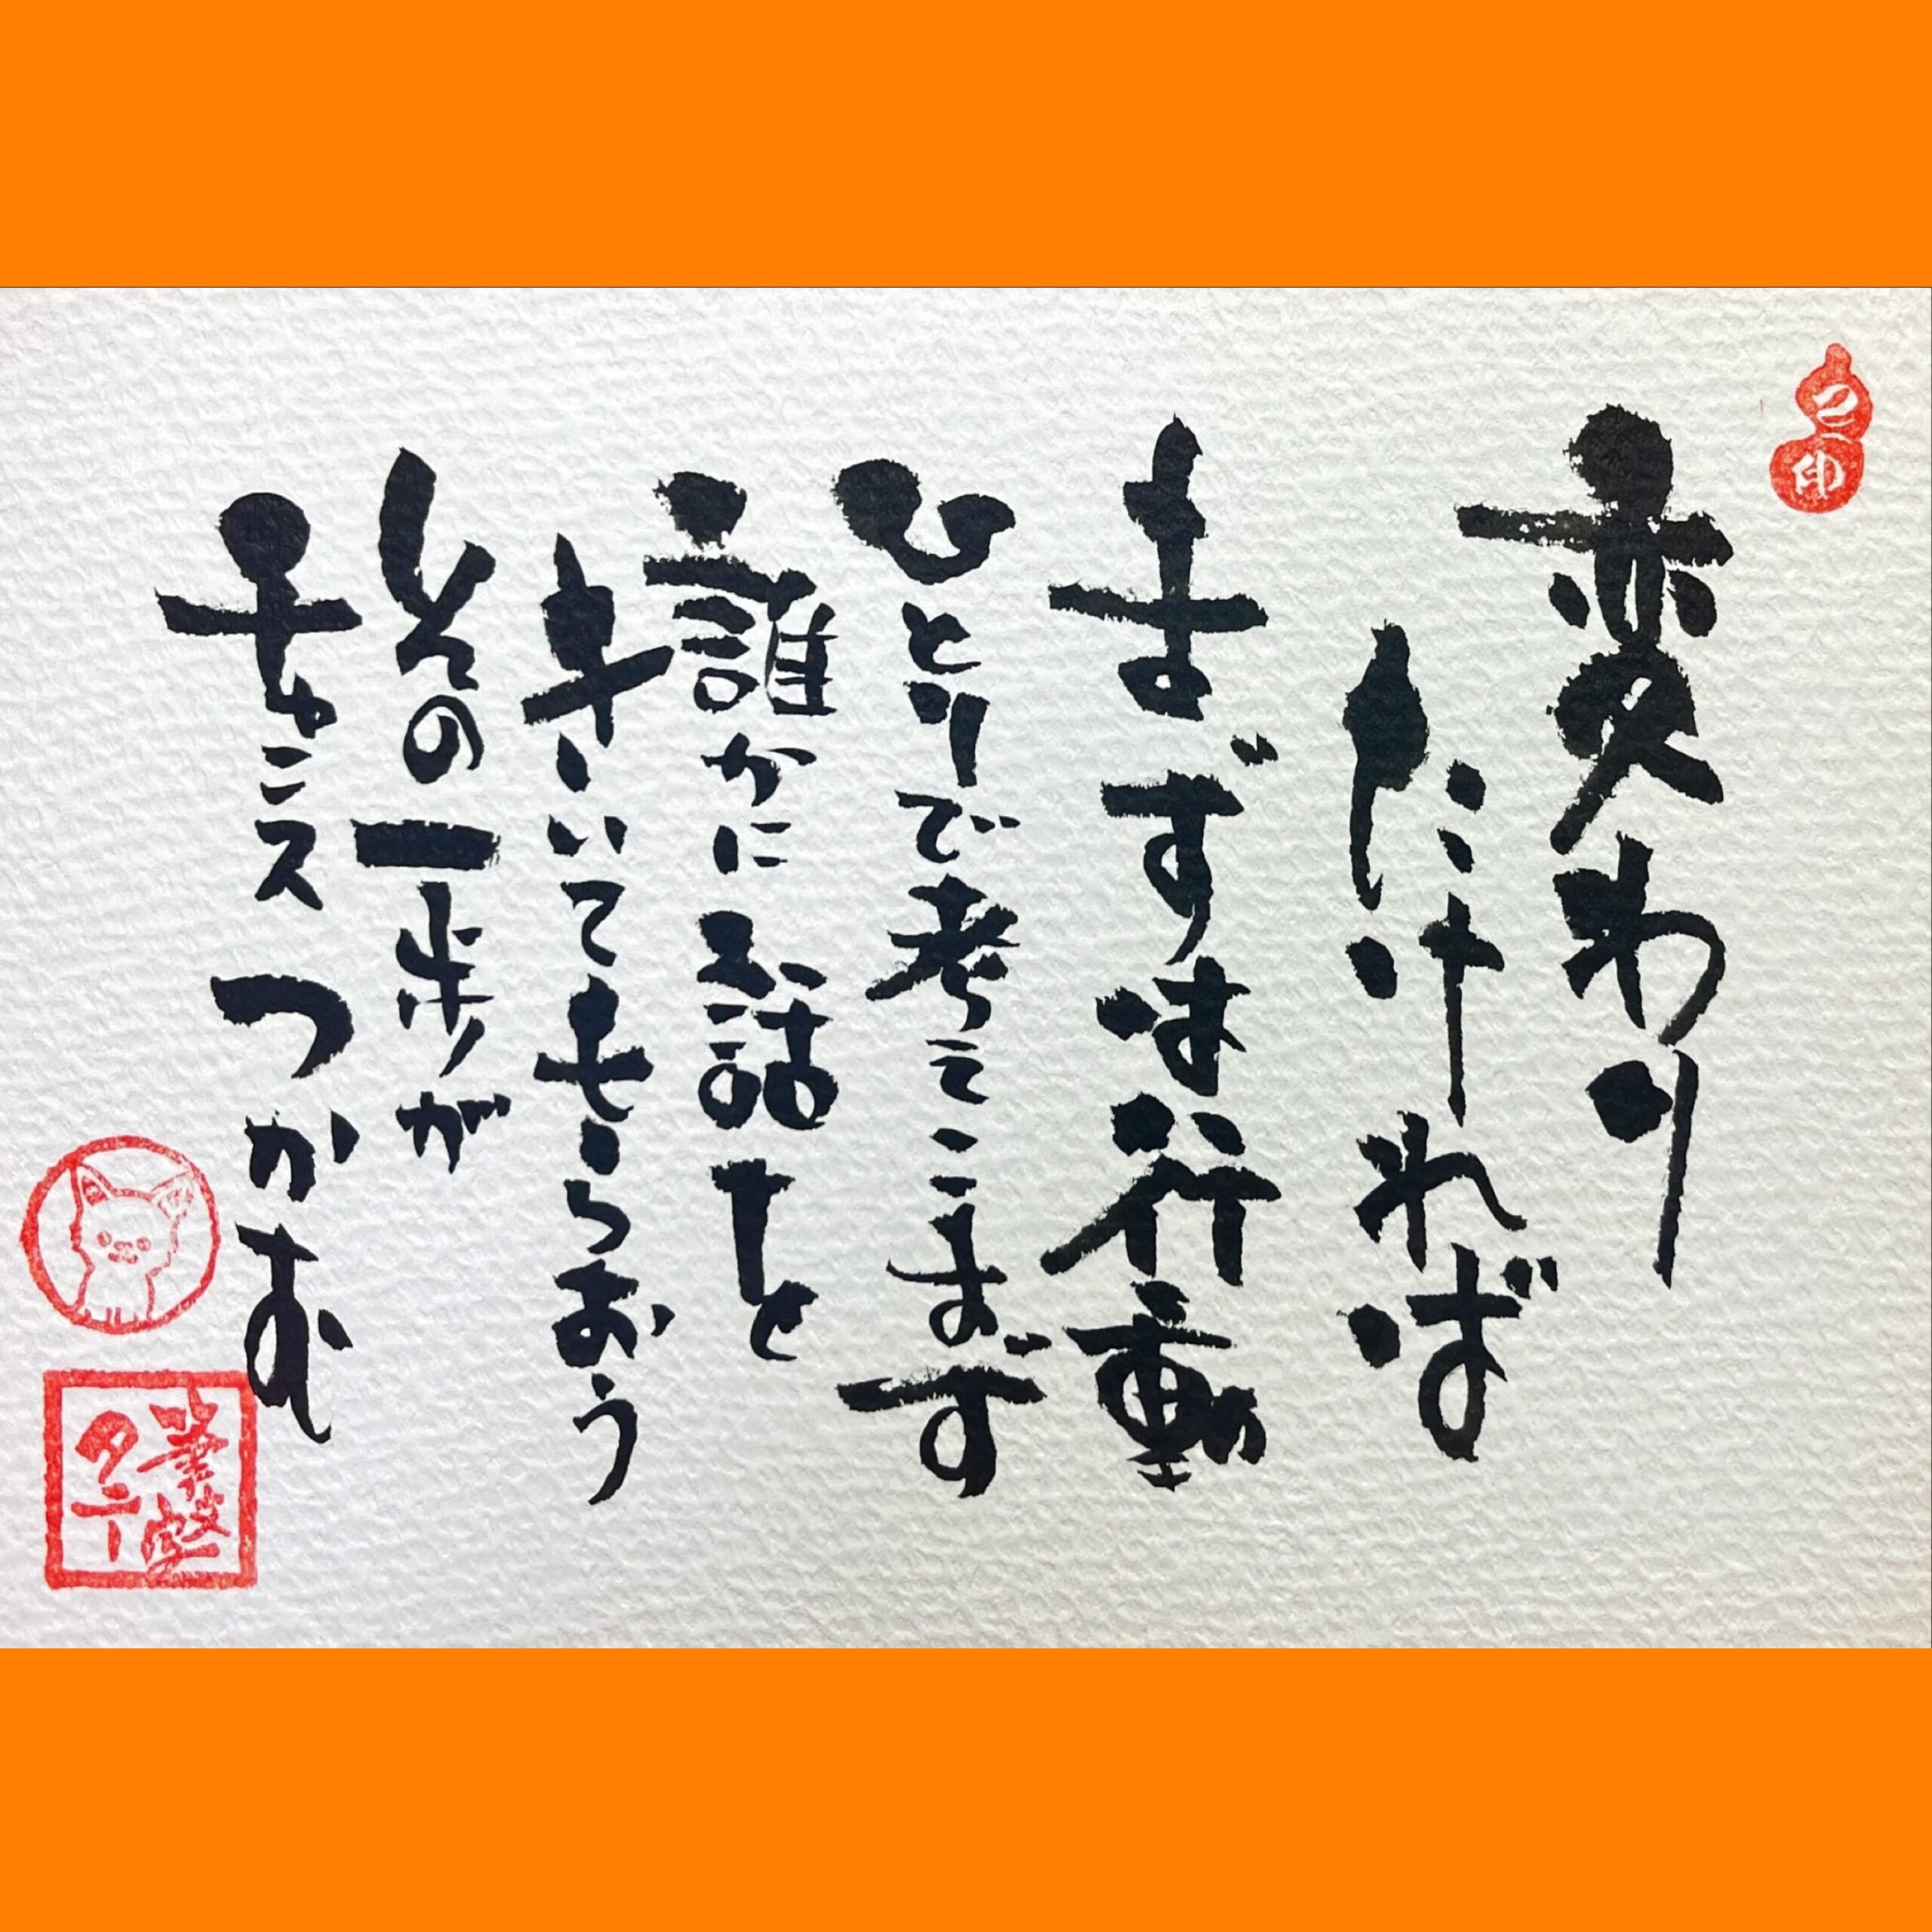 変わり
たければ
まずは行動
ひとりで考えこまず
誰かに話を
きいてもらおう
その一歩が
チャンスつかむ
タニー